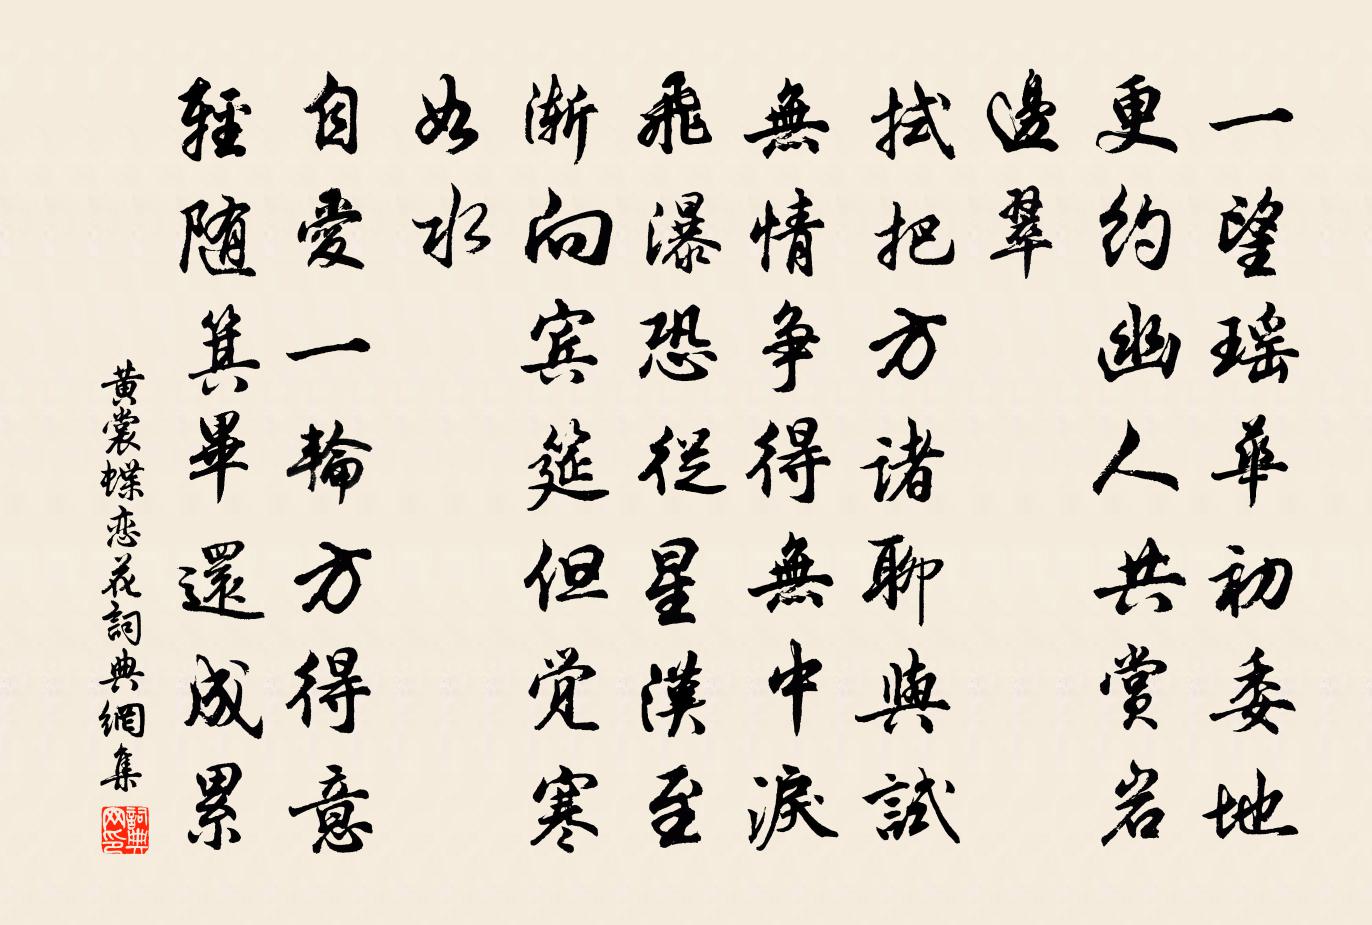 一望瑶華初委地
更約幽人共賞岩
邊翠
拭把方諸聊與試
無情争得無中淚
飛瀑恐從星漢至
漸向宾筵但觉寒
如水
自愛一輪方得意
輕随箕畢還成累
黄裳蝶恋花詞典網集
詞典网印